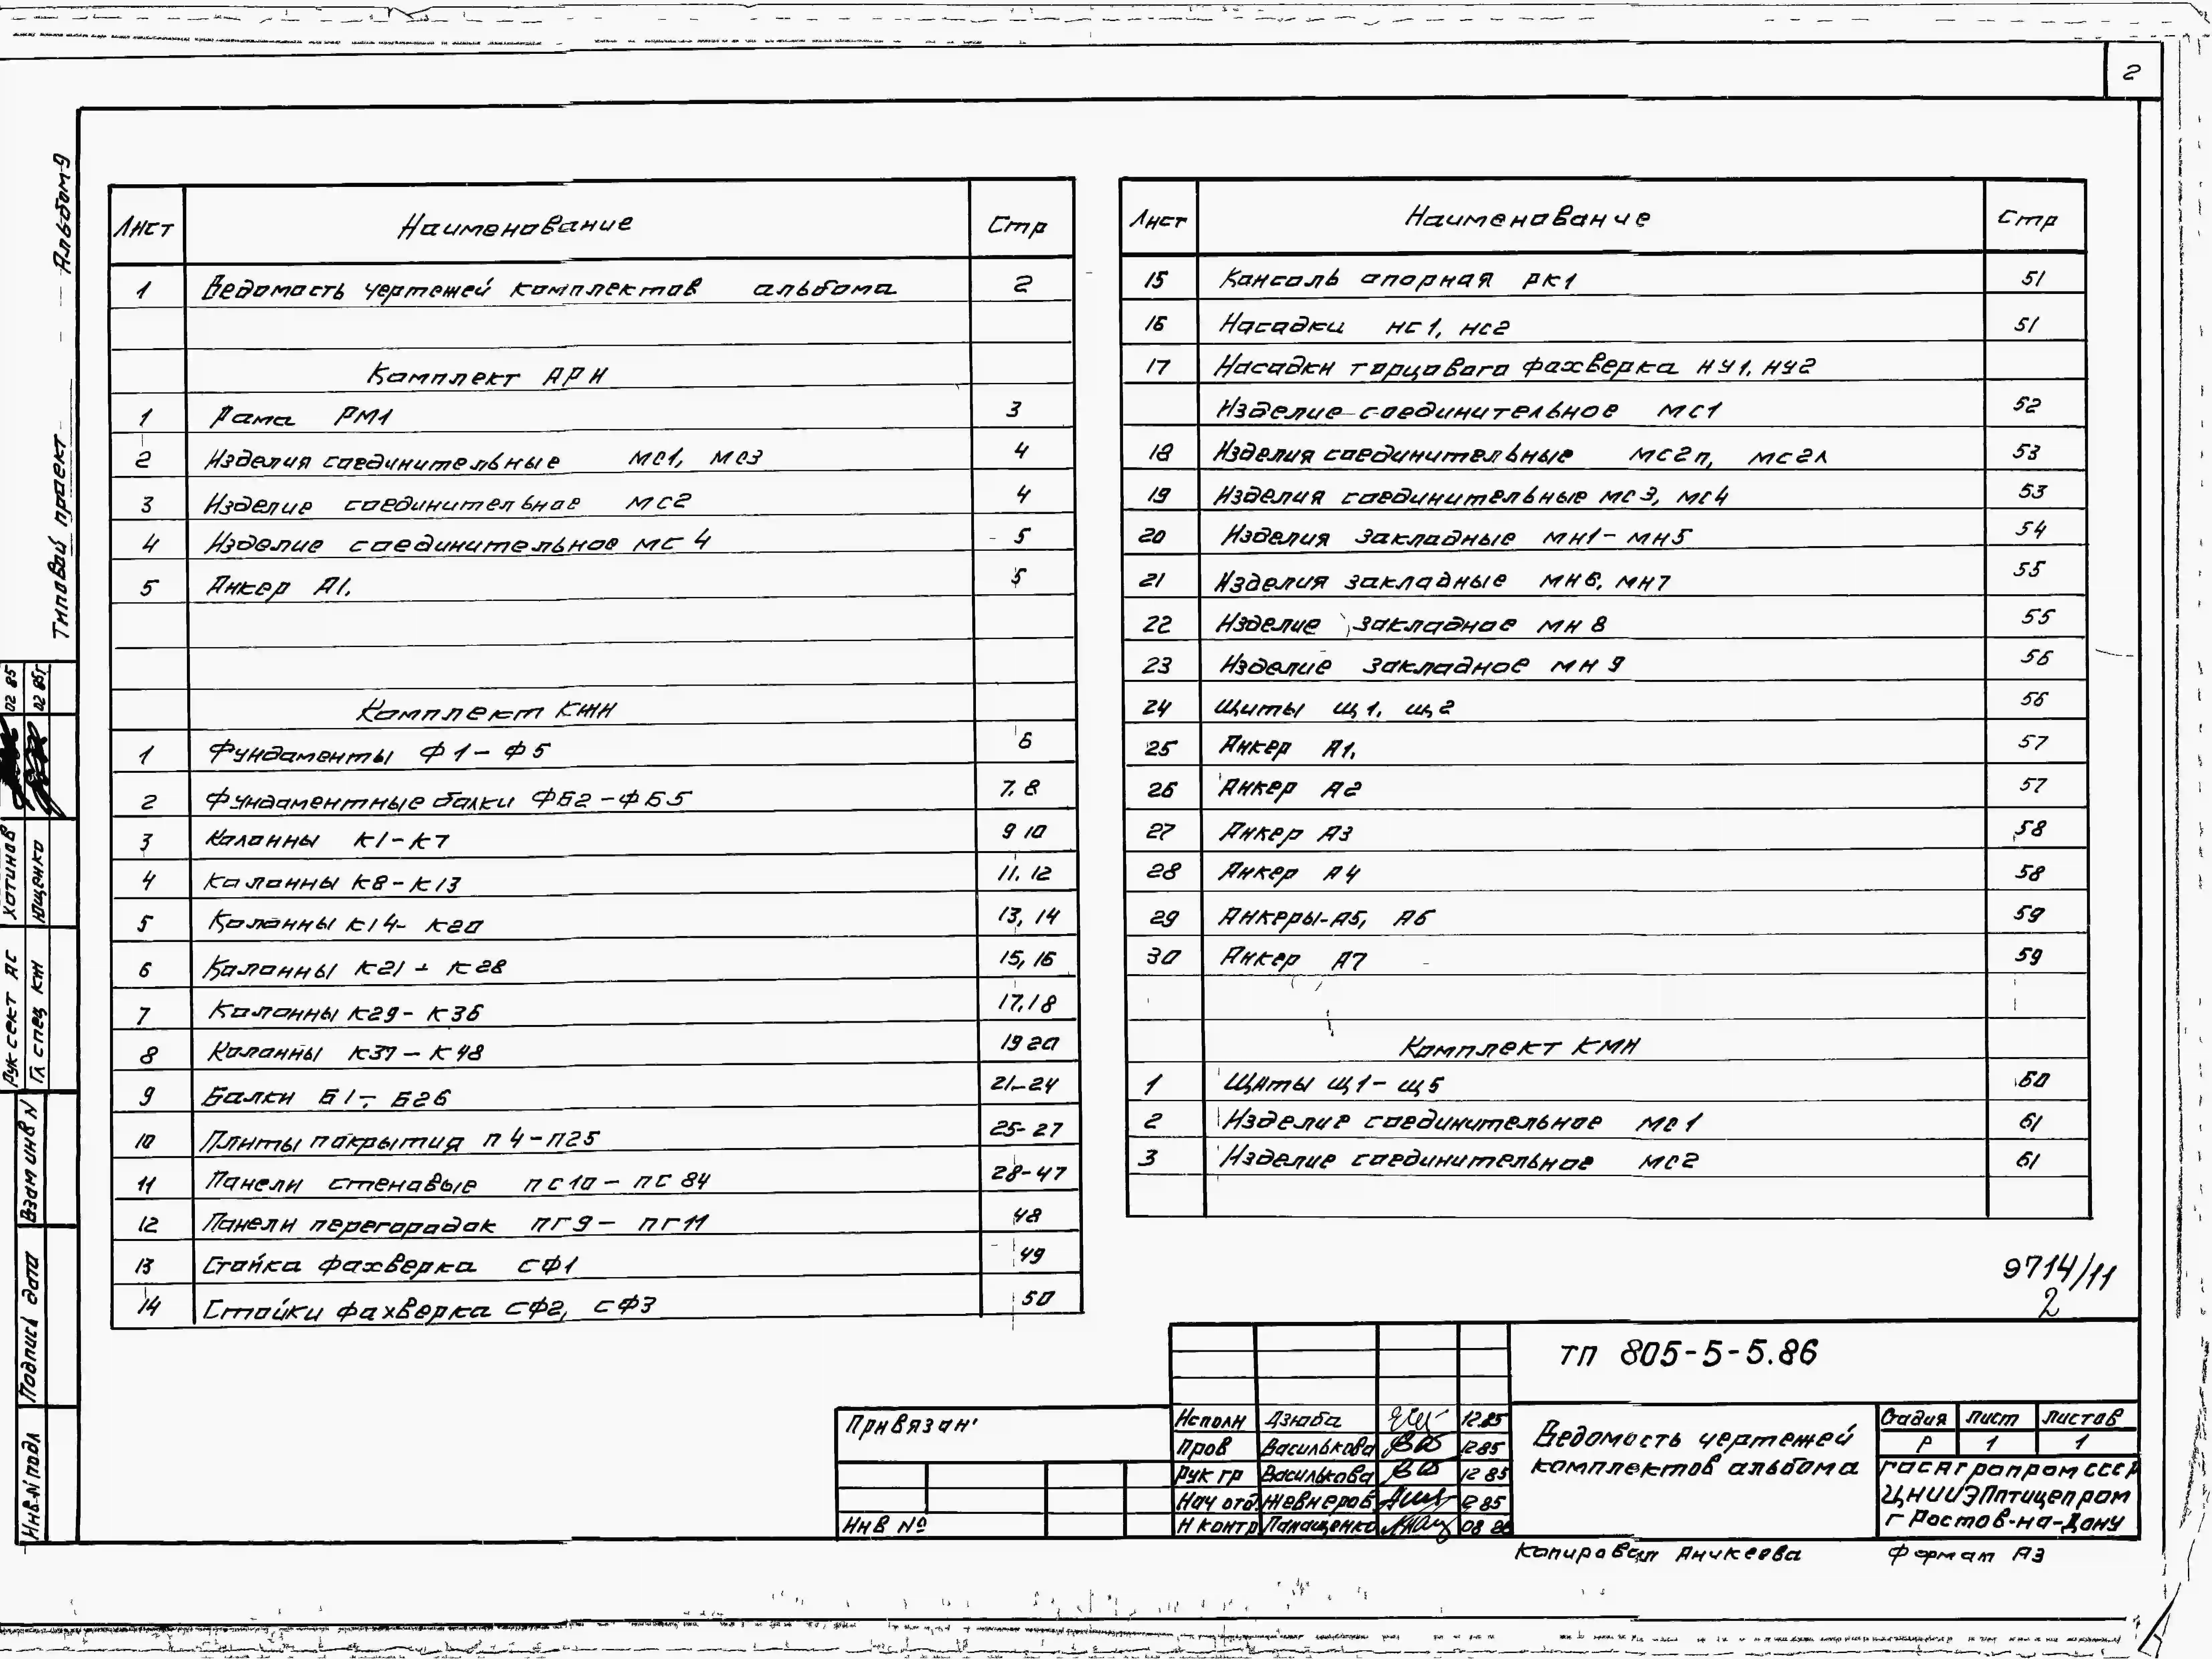 2
Типовой проект Альбом-9
Лист Наименование Стр
1 Ведомость чертежей комплектов альбома 2
Комплект АРН
1 Рама РМ1 3
2 Изделия соединительные МС1, МС3 4
3 Изделие соединительное МС2 4
4 Изделие соединительное МС4 5
5 Анкер А1. 5
Комплект КЖН
1 Фундаменты Ф1-Ф5 6
2 Фундаментные балки ФБ2-ФБ5 7, 8
3 Колонны К1-К7 9 10
4 Колонны К8-К13 11, 12
5 Колонны К14-К20 13, 14
6 Колонны К21-К28 15, 16
7 Колонны К29-К36 17, 18
8 Колонны К37-К48 19 20
9 Балки Б1-Б26 21-24
10 Плиты покрытия П4-П25 25-27
11 Панели стеновые ПС10-ПС84 28-47
12 Панели перегородок ПГ9-ПГ11 48
13 Стойка фахверка СФ1 49
14 Стойки фахверка СФ2, СФ3 50
Лист Наименование Стр
15 Консоль опорная РК1 51
16 Насадки НС1, НС2 51
17 Насадки торцового фахверка НУ1, НУ2
Изделие соединительное МС1 52
18 Изделия соединительные МС2п, МС2л 53
19 Изделия соединительные МС3, МС4 53
20 Изделия закладные МН1-МН5 54
21 Изделия закладные МН6, МН7 55
22 Изделие закладное МН8 55
23 Изделие закладное МН9 56
24 Щиты Щ1, Щ2 56
25 Анкер А1. 57
26 Анкер А2 57
27 Анкер А3 58
28 Анкер А4 58
29 Анкеры-А5, А6 59
30 Анкер А7 59
Комплект КМН
1 Щиты Щ1-Щ5 60
2 Изделие соединительное МС1 61
3 Изделие соединительное МС2 61
9714/11
2
ТП 805-5-5.86
Привязан
Инв №
Исполн Дзюба 12.85
Пров Василькова 12 85
Рук гр Василькова 12 85
Нач отд. Жевнеров 12 85
Н контр Панащенко 08 86
Ведомость чертежей
комплектов альбома
Стадия Лист Листов
Р 1 1
Госагропром СССР
ЦНИИЭПптицепром
г Ростов-на-Дону
Копировал Аникеева Формат А3
Рук сект АС Хотинов 02 85
Гл спец КЖ Ющенко 02 85
Взам инв N
Подпись дата
Инв.N подл